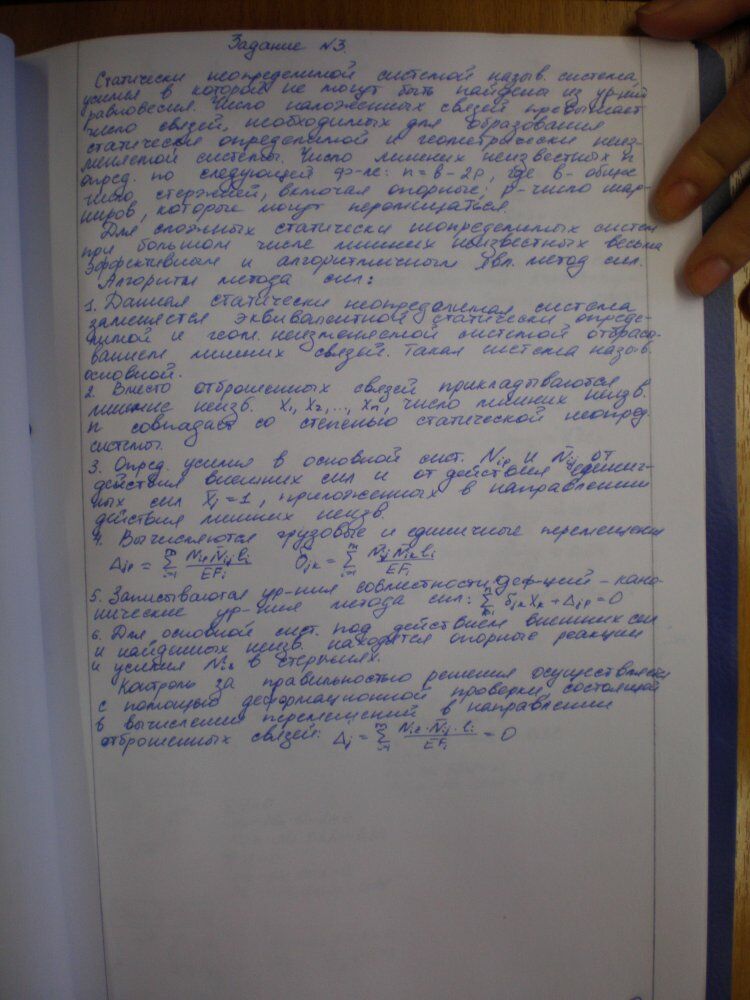 Задание №3.
Статически неопределимой системой назыв. система,
усилия в которой не могут быть найдены из ур-ний
равновесия. Число наложенных связей превышает
число связей, необходимых для образования
статически определимой и геометрически неиз-
меняемой системы. Число лишних неизвестных n
опред. по следующей ф-ле: n = в - 2р, где в - общее
число стержней, включая опорные; р - число шар-
ниров, которые могут перемещаться.
Для сложных статически неопределимых систем
при большом числе лишних неизвестных весьма
эффективным и алгоритмичным явл. метод сил.
Алгоритм метода сил:
1. Данная статически неопределимая система
заменяется эквивалентной статически опреде-
лимой и геом. неизменяемой системой отбрасы-
ванием лишних связей. Такая система назыв.
основной.
2. Вместо отброшенных связей прикладываются
лишние неизв. X₁, X₂, ..., Xn, число лишних неизв.
n совпадает со степенью статической неопред.
системы.
3. Опред. усилия в основной сист. Nip и N̄ij от
действия внешних сил и от действия единич-
ных сил X̄j = 1, приложенных в направлении
действия лишних неизв.
4. Вычисляются грузовые и единичные перемещения
Δjp = Σ Nip N̄ij li / EFi δjk = Σ N̄ij N̄ik li / EFi
5. Записываются ур-ния совместности деф-ций - кано-
нические ур-ния метода сил: Σ δjk Xk + Δjp = 0
6. Для основной сист. под действием внешних сил
и найденных неизв. находятся опорные реакции
и усилия Niz в стержнях.
Контроль за правильностью решения осуществляется
с помощью деформационной проверки, состоящей
в вычислении перемещений в направлении
отброшенных связей: Δj = Σ Niz · N̄ij · li / EFi = 0